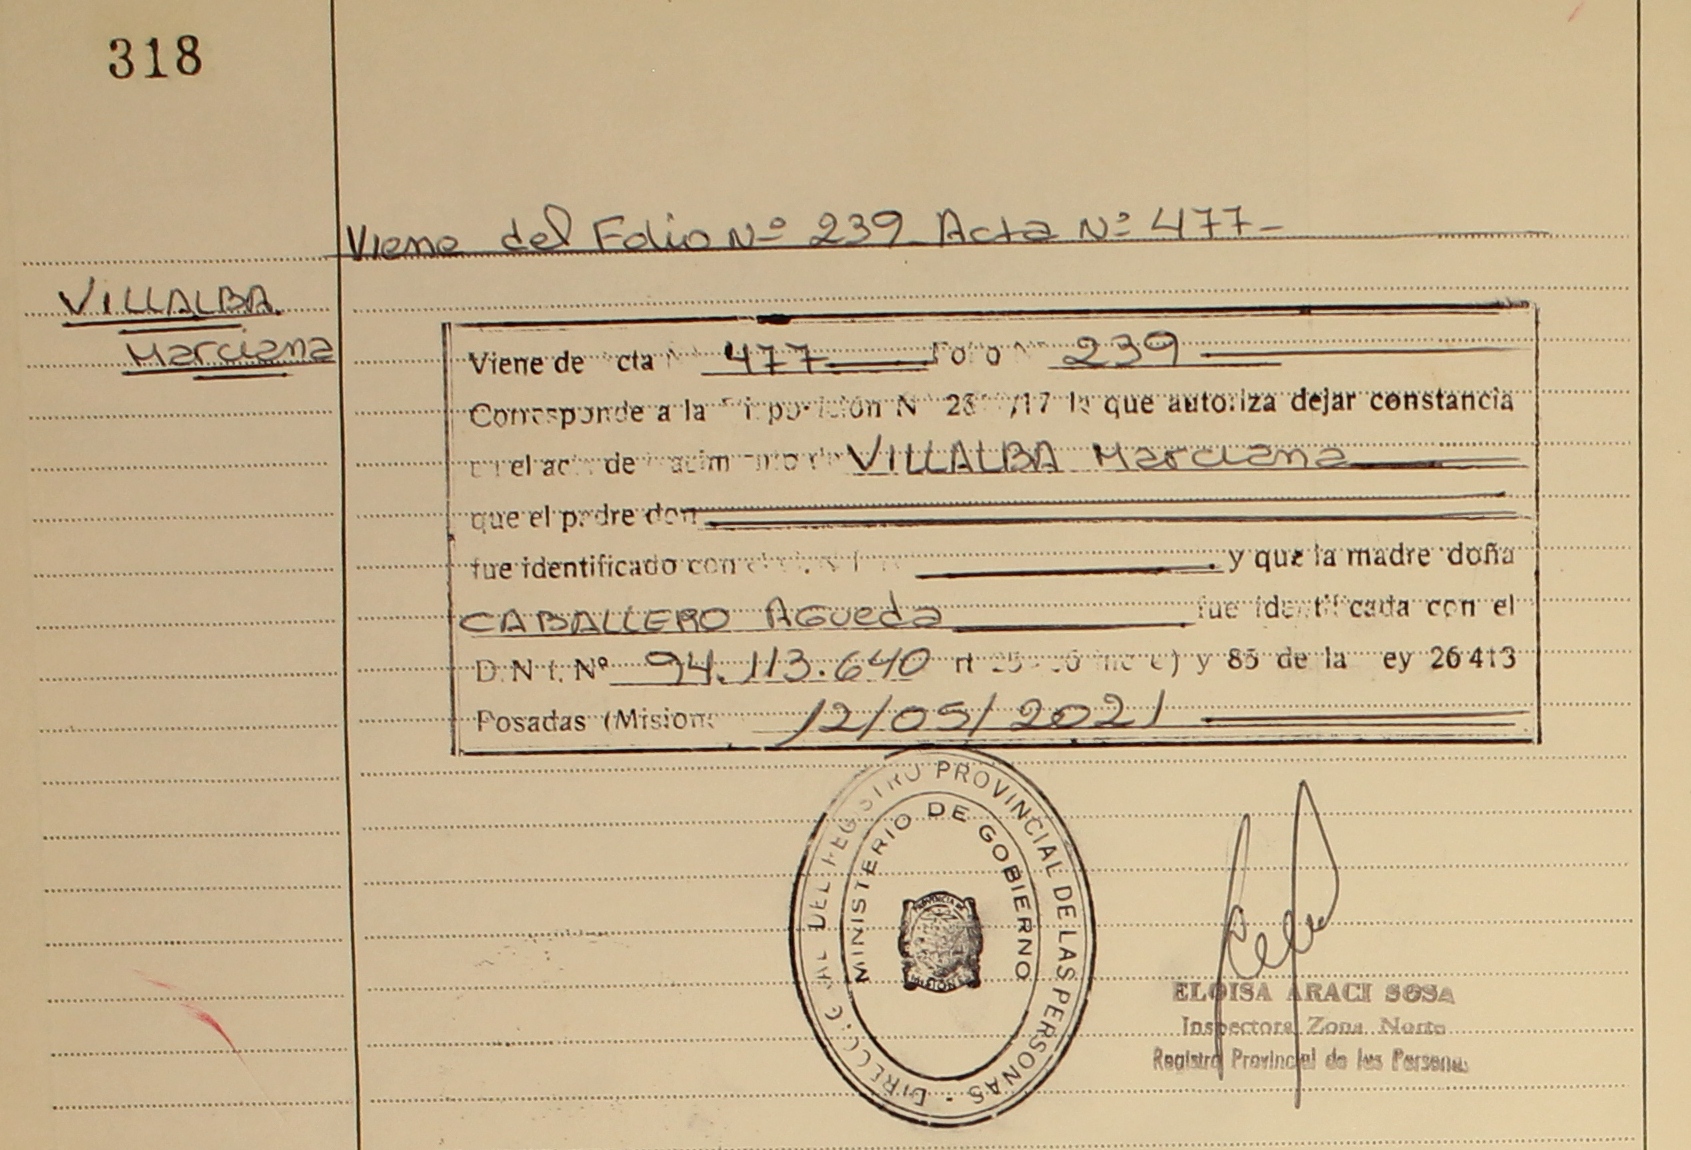 318
Viene del Folio Nº 239 Acta Nº 477-
VILLALBA
Marciana
Viene de cta N 477 Fo o Nº 239
Corresponde a la /17 la que autoriza dejar constancia
el de VILLALBA Marciana
que el padre don
fue identificado con y que la madre doña
CABALLERO AGueda fue identificada con el
D.N.I. Nº 94.113.640 y 85 de la ey 26413
Posadas (Mision 12/05/2021
DIRECC G AL DEL REGISTRO PROVINCIAL DE LAS PERSONAS
MINISTERIO DE GOBIERNO
ELOISA ARACI SOSA
Inspectora Zona Norte
Registro Provincial de las Personas